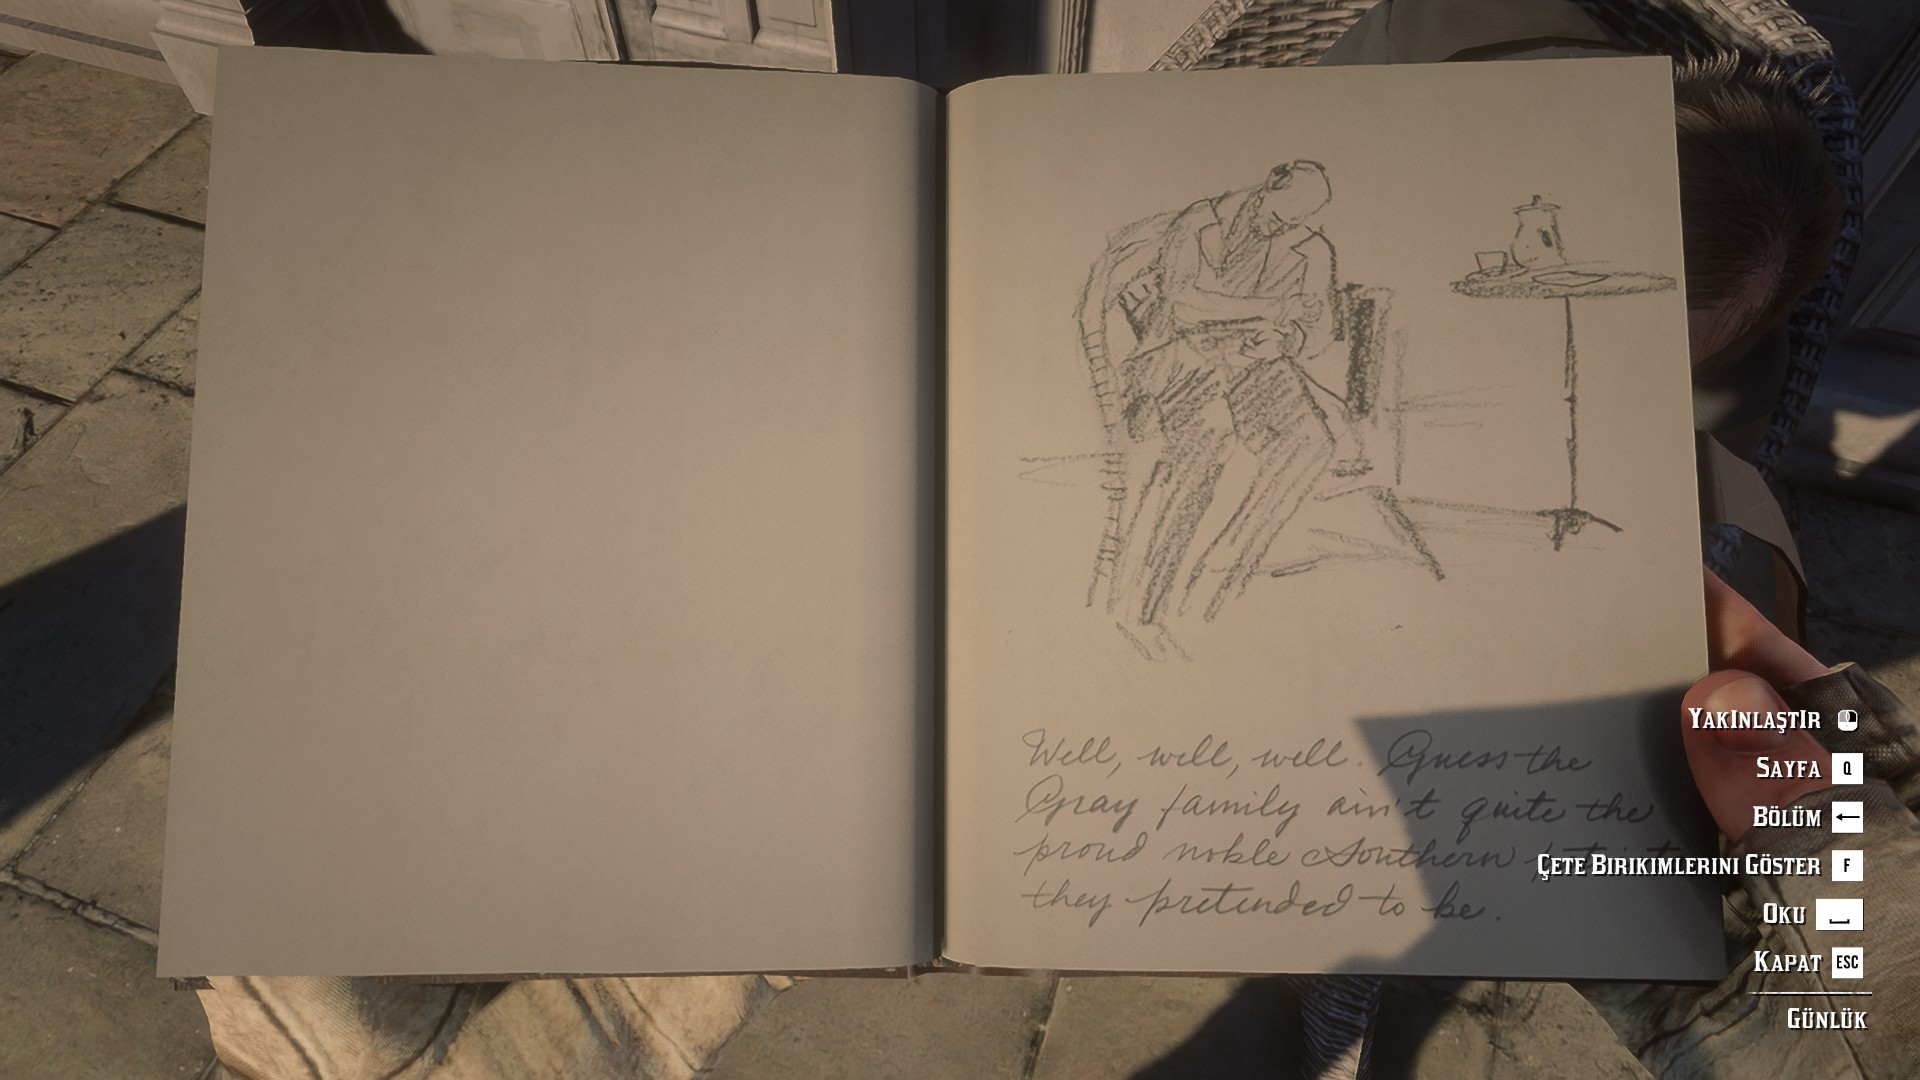 Well, well, well. Guess the
Gray family ain't quite the
proud noble Southern
they pretended to be.
YAKINLAŞTIR
SAYFA Q
BÖLÜM ←
ÇETE BIRIKIMLERINI GÖSTER F
OKU
KAPAT ESC
GÜNLÜK